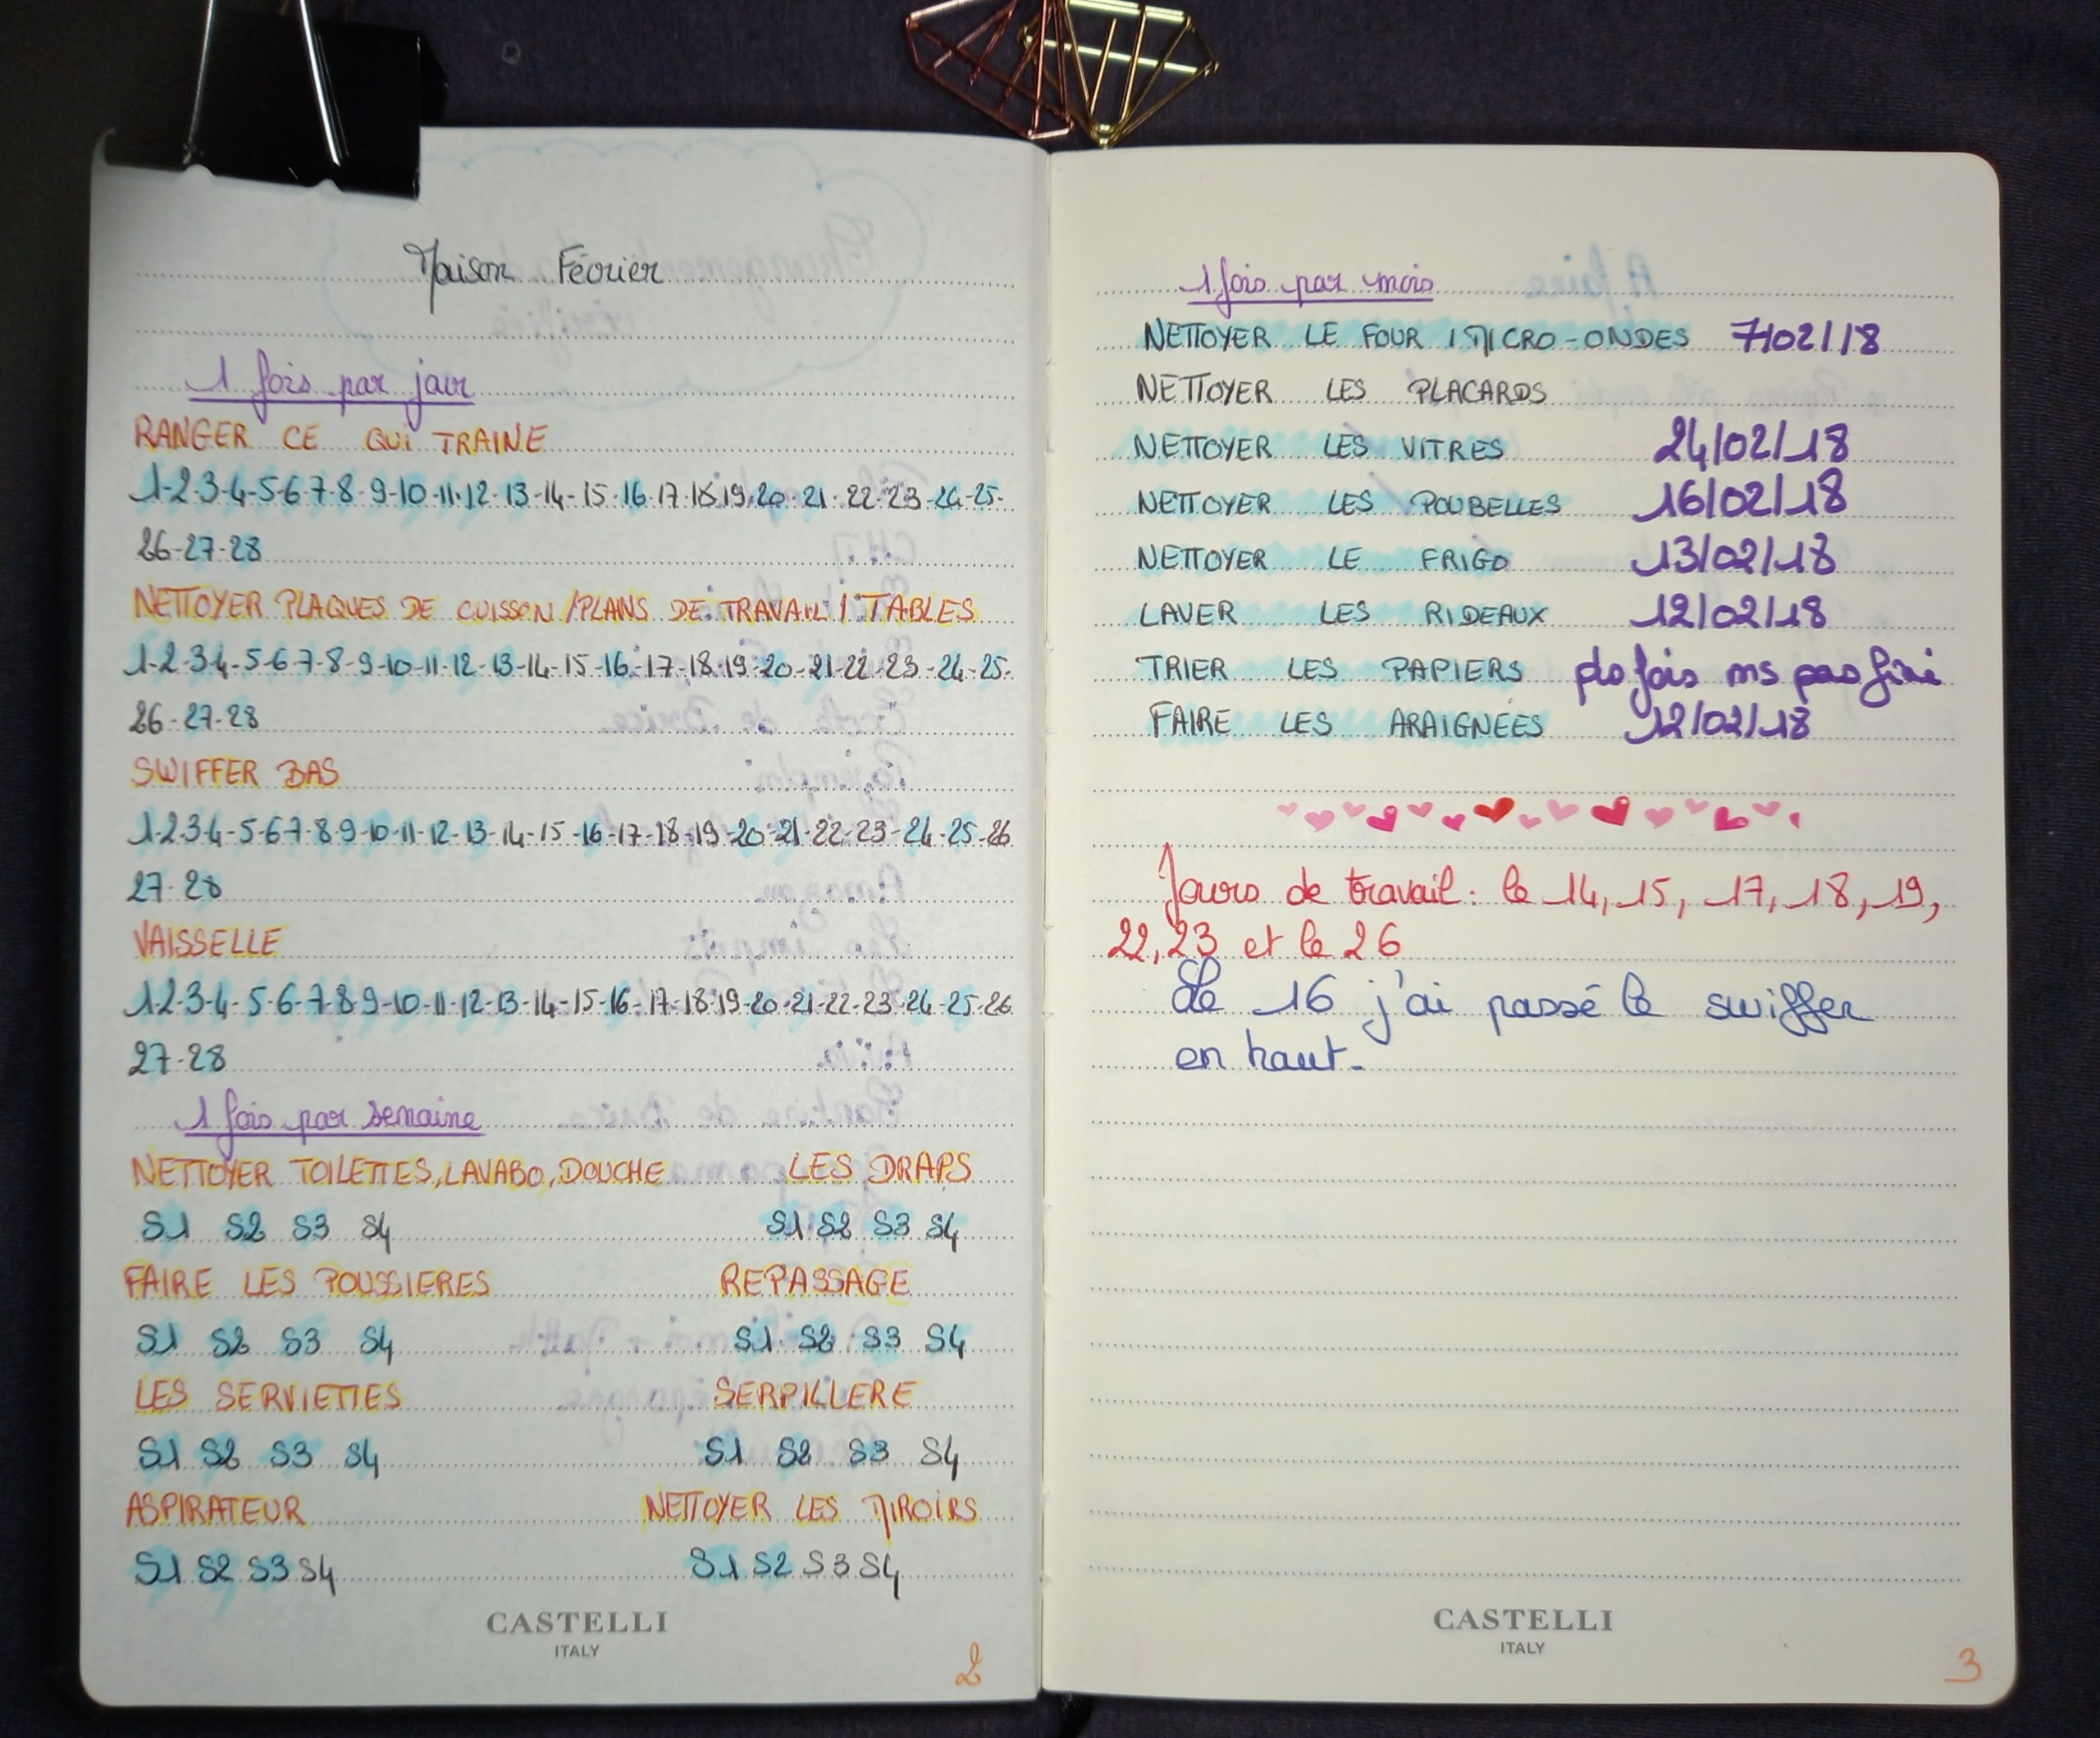 Maison Février
1 fois par jour
RANGER CE QUI TRAINE
1-2-3-4-5-6-7-8-9-10-11-12-13-14-15-16-17-18-19-20-21-22-23-24-25-
26-27-28
NETTOYER PLAQUES DE CUISSON/PLANS DE TRAVAIL/TABLES
1-2-3-4-5-6-7-8-9-10-11-12-13-14-15-16-17-18-19-20-21-22-23-24-25-
26-27-28
SWIFFER BAS
1-2-3-4-5-6-7-8-9-10-11-12-13-14-15-16-17-18-19-20-21-22-23-24-25-26
27-28
VAISSELLE
1-2-3-4-5-6-7-8-9-10-11-12-13-14-15-16-17-18-19-20-21-22-23-24-25-26
27-28
1 fois par semaine
NETTOYER TOILETTES, LAVABO, DOUCHE LES DRAPS
S1 S2 S3 S4 S1 S2 S3 S4
FAIRE LES POUSSIERES REPASSAGE
S1 S2 S3 S4 S1 S2 S3 S4
LES SERVIETTES SERPILLERE
S1 S2 S3 S4 S1 S2 S3 S4
ASPIRATEUR NETTOYER LES MIROIRS
S1 S2 S3 S4 S1 S2 S3 S4
CASTELLI
ITALY
2
1 fois par mois
NETTOYER LE FOUR / MICRO-ONDES 7/02/18
NETTOYER LES PLACARDS
NETTOYER LES VITRES 24/02/18
NETTOYER LES POUBELLES 16/02/18
NETTOYER LE FRIGO 13/02/18
LAVER LES RIDEAUX 12/02/18
TRIER LES PAPIERS pls fois ms pas fini
FAIRE LES ARAIGNÉES 12/02/18
Jours de travail : le 14, 15, 17, 18, 19,
22, 23 et le 26
Le 16 j'ai passé le swiffer
en haut.
CASTELLI
ITALY
3